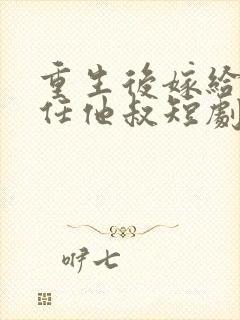 重生後嫁給
任他叔短劇
咿七